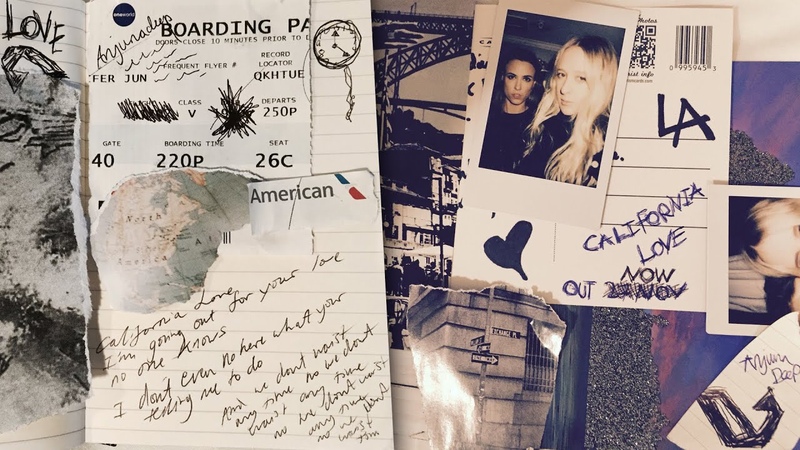 LOVE
Anjunadeep
oneworld
BOARDING PA
DOORS CLOSE 10 MINUTES PRIOR TO D
FER JUN
FREQUENT FLYER #
RECORD
LOCATOR
QKHTUE
CLASS
V
DEPARTS
250P
GATE
40
BOARDING TIME
220P
SEAT
26C
North
America
American
California Love
I'm going out for your love
no one knows
I don't even no here what your
telling me to do
And we dont waist
any time no we dont
waist any time
no we dont waist
any time
no we dont
waist
tim
hotos
ist info
0 995945 3
LA
CALIFORNIA
LOVE
OUT NOW
EXCHANGE PL
Anjuna
Deep